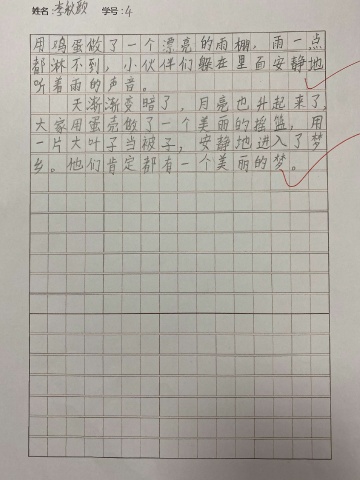 姓名:李欣颐 学号:4
用鸡蛋做了一个漂亮的雨棚，雨一点
都淋不到，小伙伴们躲在里面安静地
听着雨的声音。
天渐渐变暗了，月亮也升起来了，
大家用蛋壳做了一个美丽的摇篮，用
一片大叶子当被子，安静地进入了梦
乡。他们肯定都有一个美丽的梦。